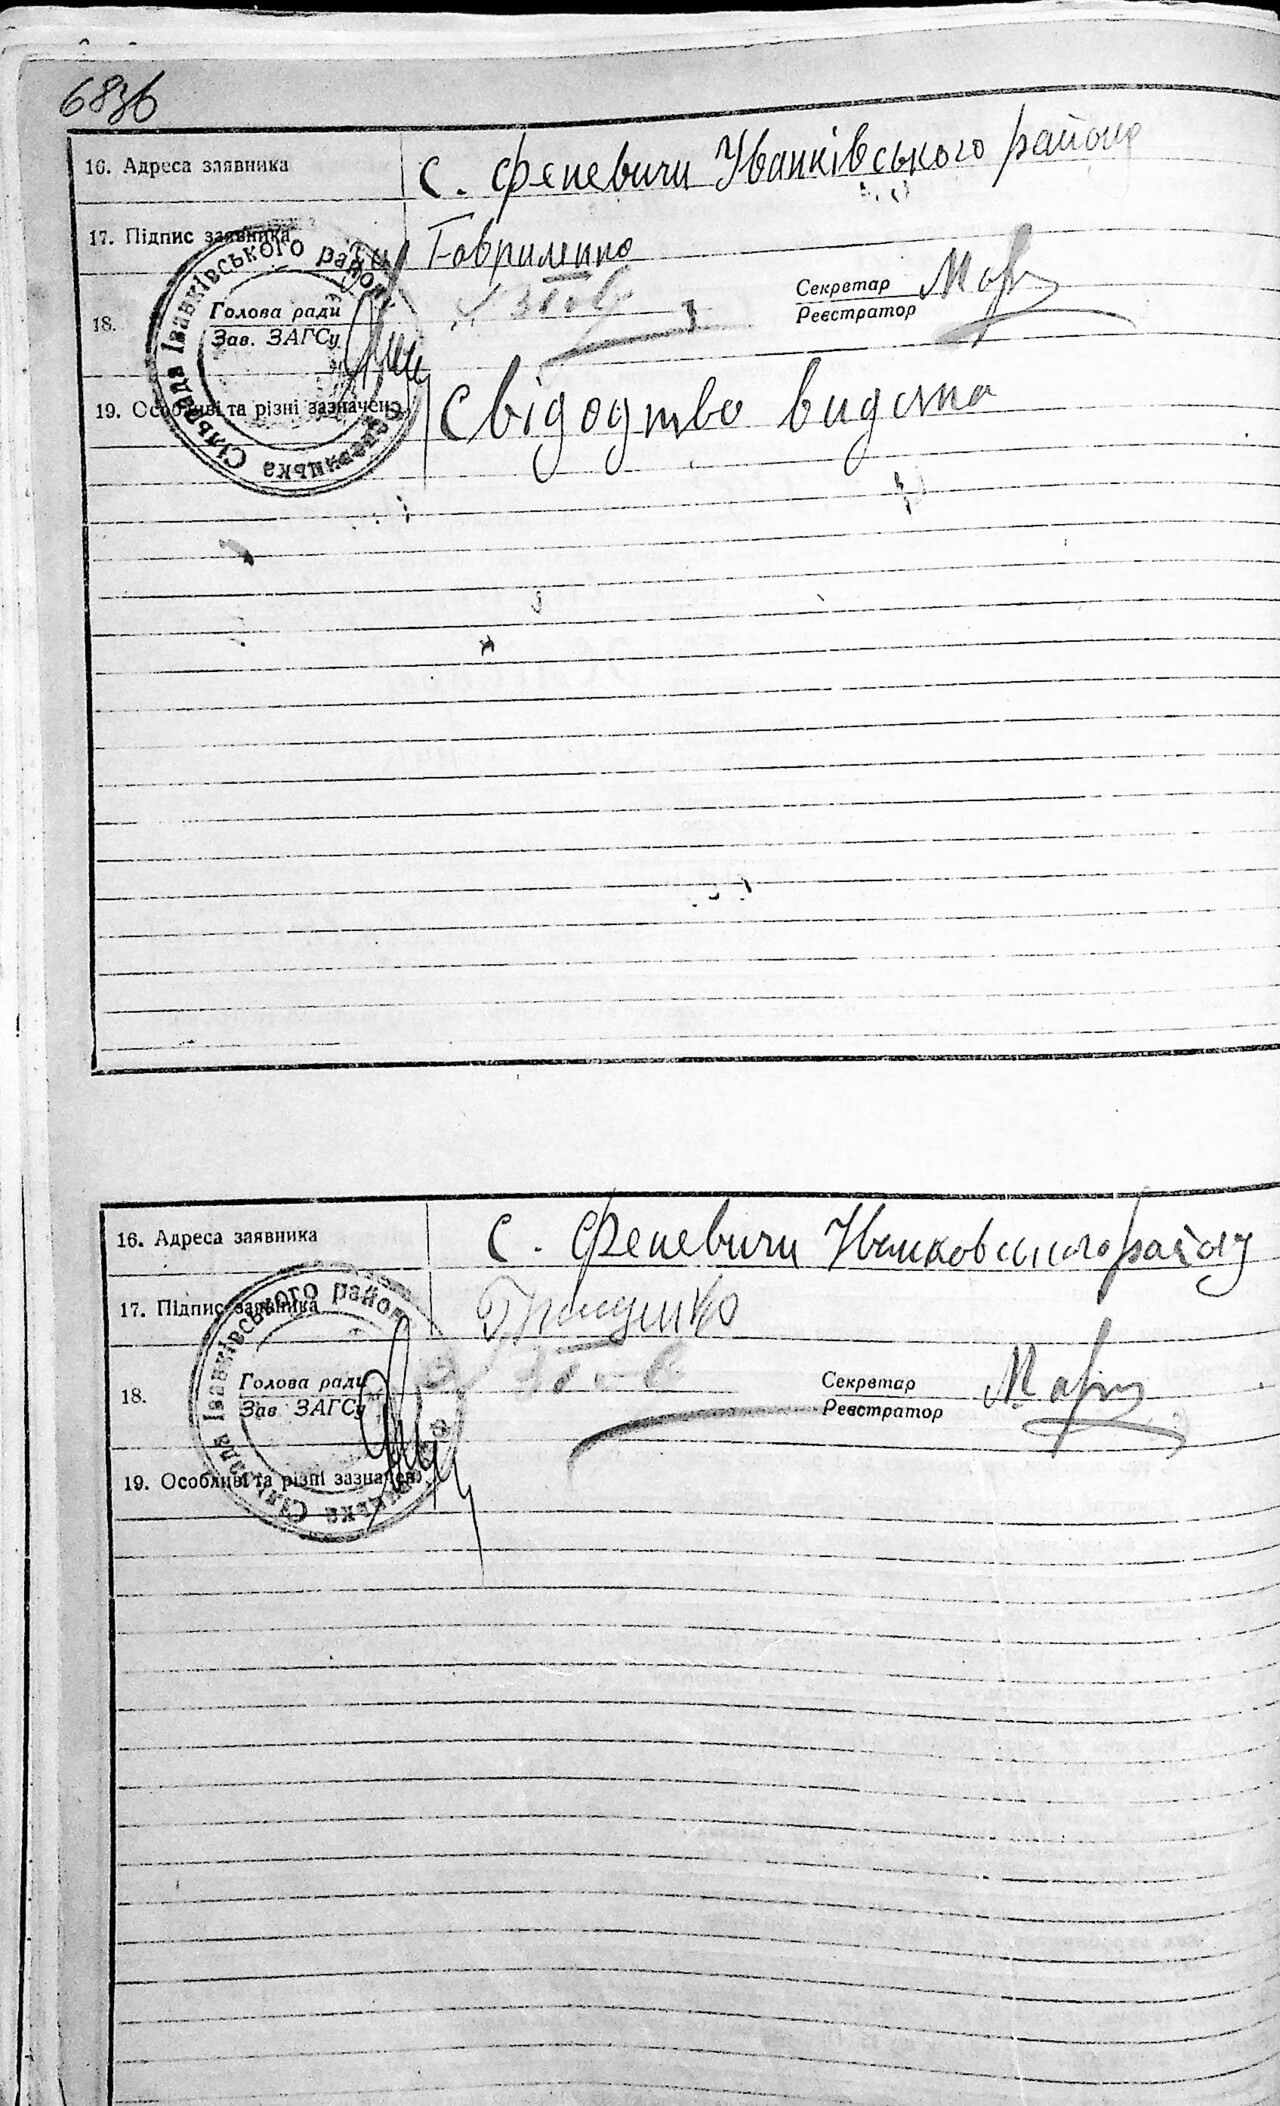 16. Адреса заявника с. Феневичи Іванківського району
17. Підпис заявника Гавриленко
18. Голова ради
Зав. ЗАГСу
Секретар
Реєстратор
19. Особливі та різні зазначен. Свідодтво видана
Іванківського району
Сільрада
16. Адреса заявника с. Феневичи Іванковського району
17. Підпис заявника Грищенко
18. Голова ради
Зав. ЗАГСу
Секретар
Реєстратор
19. Особливі та різні зазначен.
Іванківського району